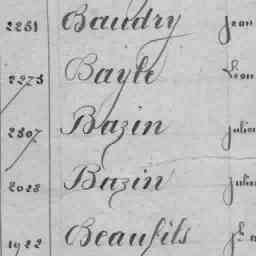 2251 Baudry Jean
2275 Bayle Léon
2307 Bazin Julien
2028 Bazin Julien
1922 Beaufils